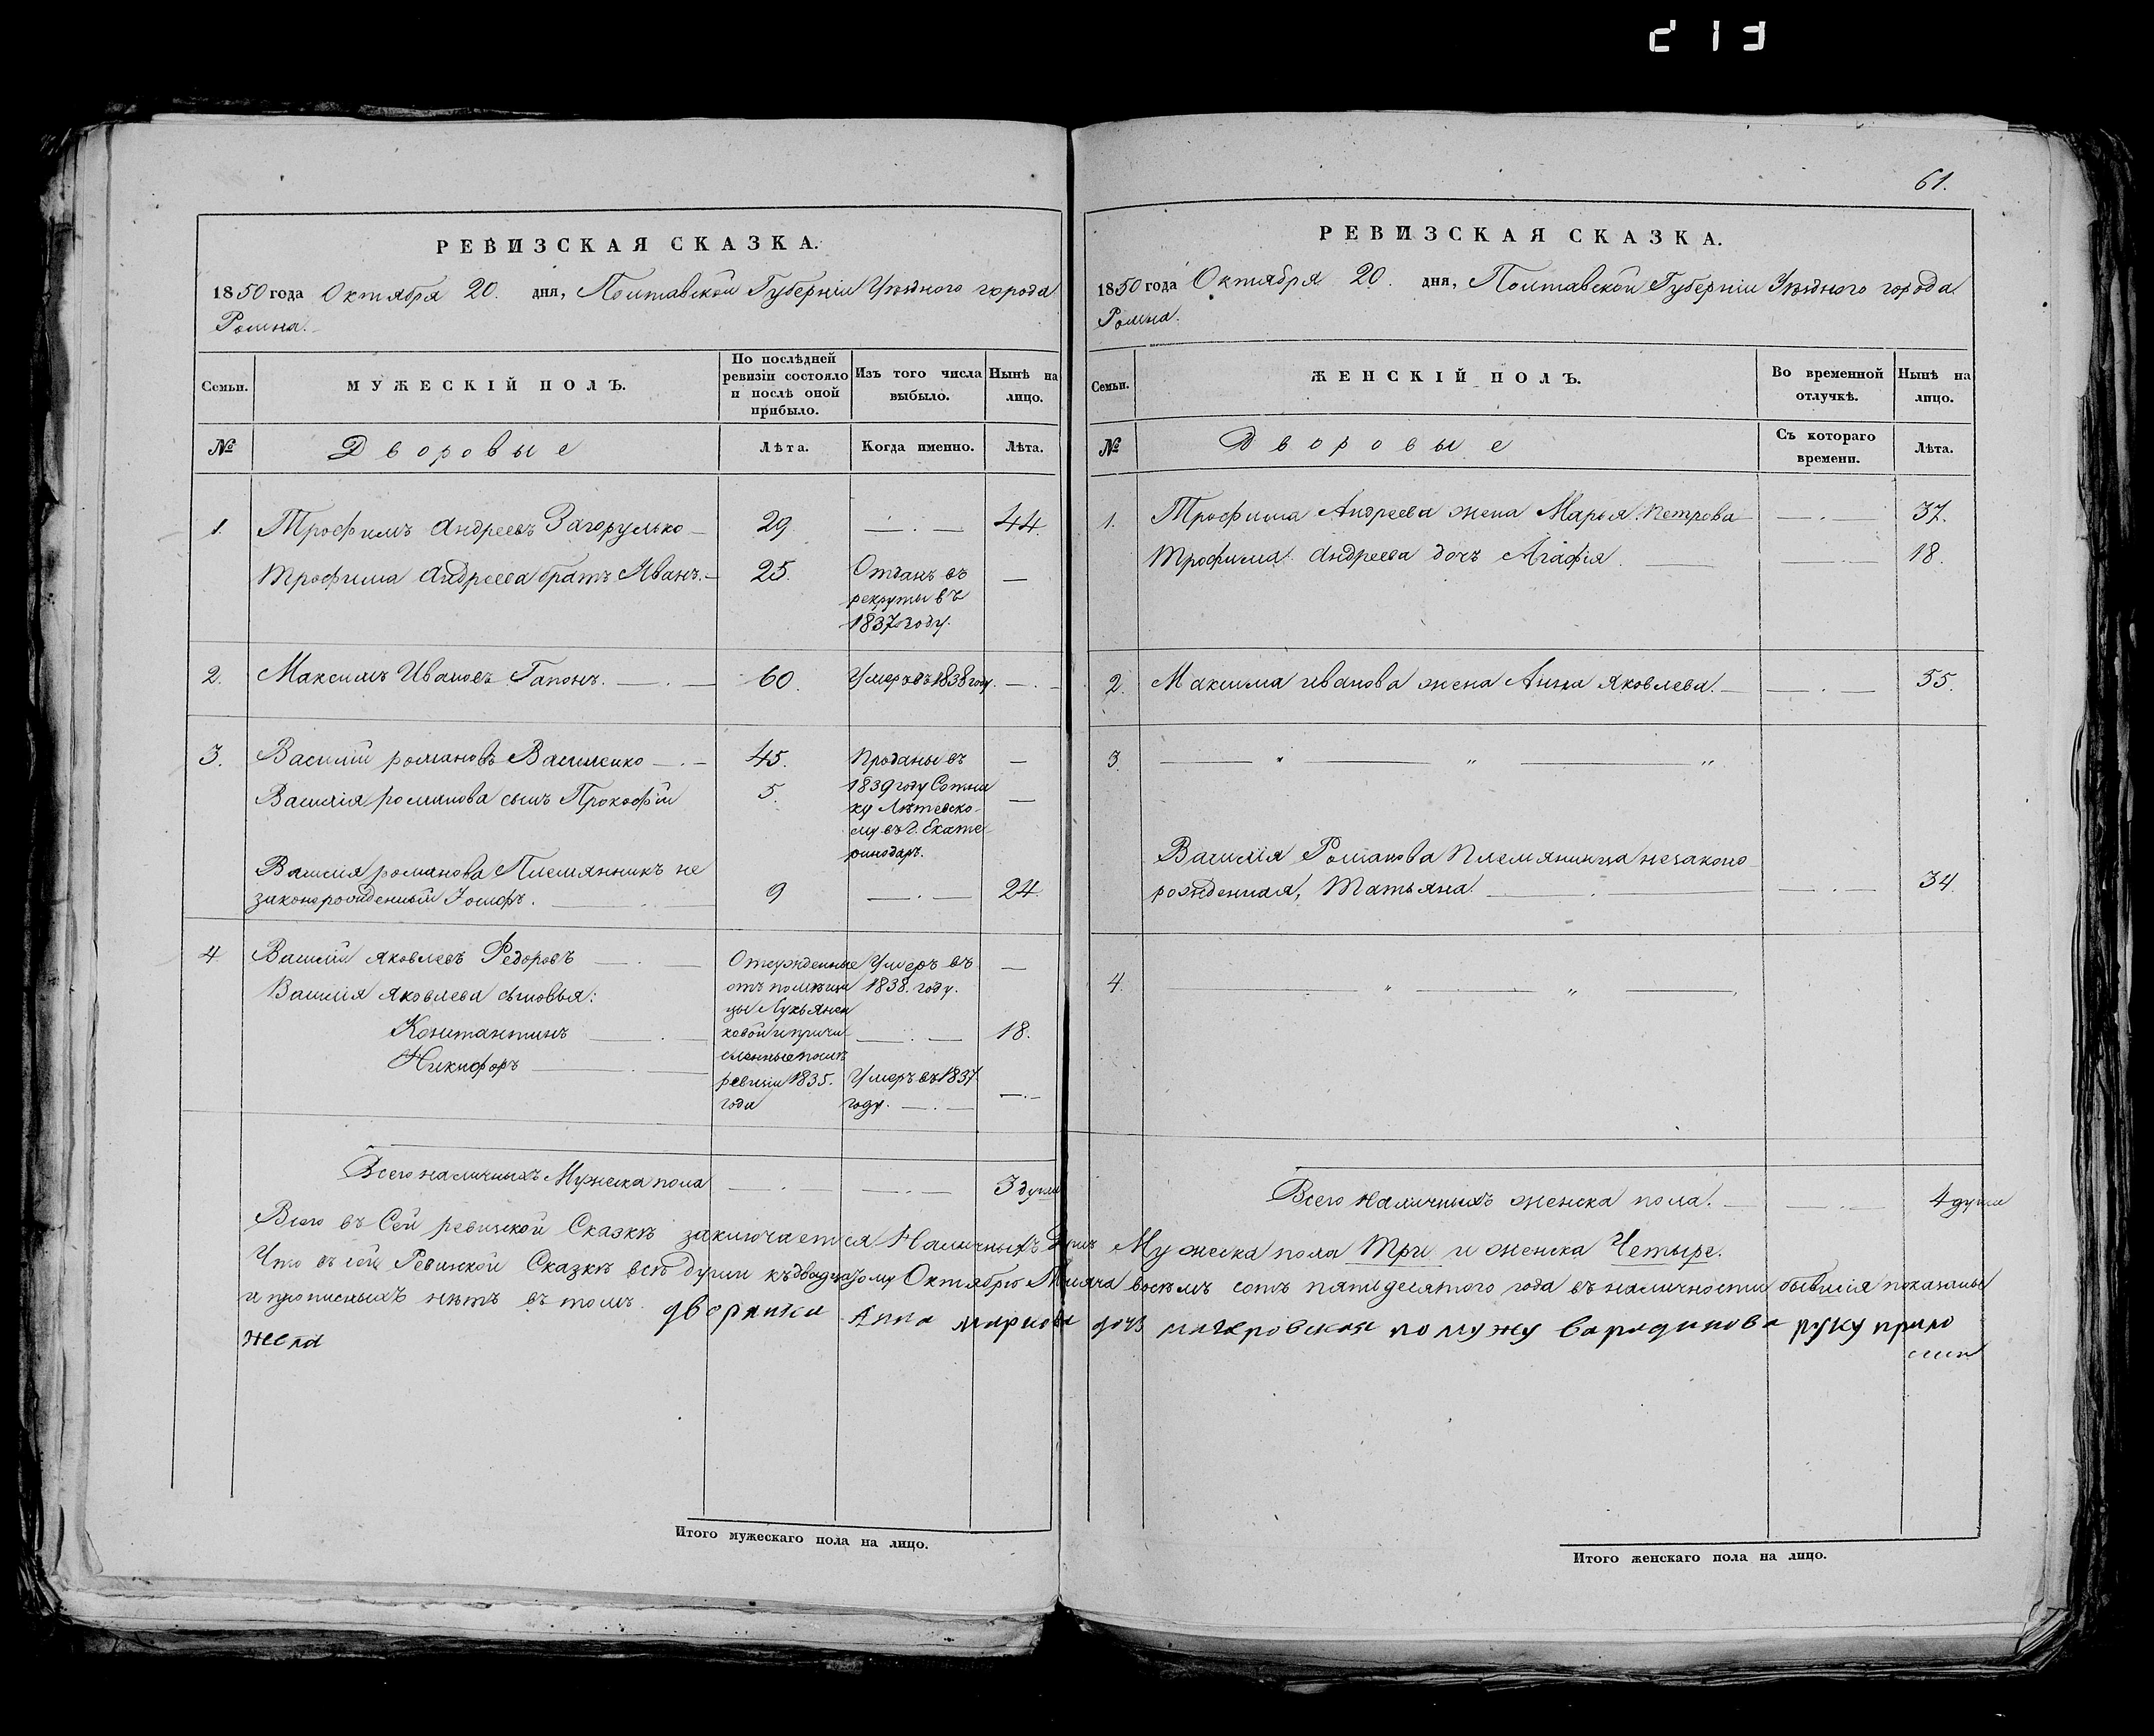 213
61.
РЕВИЗСКАЯ СКАЗКА.
1850 года Октября 20. дня, Полтавской Губерніи Уѣзднаго города
Ромна.
Семьи.
МУЖЕСКІЙ ПОЛЪ.
По послѣдней
ревизіи состояло
и послѣ оной
прибыло.
Изъ того числа
выбыло.
Нынѣ на
лицо.
№
Дворовые
Лѣта.
Когда именно.
Лѣта.
1. Трофимъ Андреевъ Загорулько 29. 44.
Трофима Андреева братъ Иванъ. 25. Отданъ въ
рекруты въ
1837 году.
2. Максимъ Ивановъ Гапонъ. 60. Умеръ въ 1838 году.
3. Василій романовъ Василенко 45. Проданы въ
Василія романова сынъ Прокофій 5. 1839 году Сотни
ку
му въ г. Екате
ринодаръ.
Василія романова Племянникъ не
законорожденный Іосифъ. 9 24.
4 Василій Яковлевъ Федоровъ Отсужденные Умеръ въ
Василія Яковлева сыновья: отъ помѣщи 1838. году.
цы Лукьянен
Константинъ ковой и причи 18.
Никифоръ сленные послѣ
ревизіи 1835. Умеръ въ 1837
года году.
Всего наличныхъ Мужеска пола 3 души
Итого мужескаго пола на лицо.
РЕВИЗСКАЯ СКАЗКА.
1850 года Октября 20. дня, Полтавской Губерніи Уѣзднаго города
Ромна.
Семьи.
ЖЕНСКІЙ ПОЛЪ.
Во временной
отлучкѣ.
Нынѣ на
лицо.
№
Дворовые
Съ котораго
времени.
Лѣта.
1. Трофима Андреева жена Марья Петрова 37.
Трофима Андреева дочь Агафія. 18.
2. Максима иванова жена Анна Яковлева. 55.
3.
Василія Романова Племянница незаконо
рожденная, Татьяна. 34.
4.
Всего наличныхъ женска пола. 4 души
Всего въ Сей ревизской Сказкѣ заключается Наличныхъ Душъ Мужеска пола Три и женска Четыре.
Что въ сей Ревизской Сказкѣ всѣ души къ двадцатому Октября Тысяча восемь сотъ пятидесятого года въ наличности бывшія показаны
и прописныхъ нѣтъ въ томъ. дворянка Анна маркова дочь по мужу руку прило
жела
Итого женскаго пола на лицо.